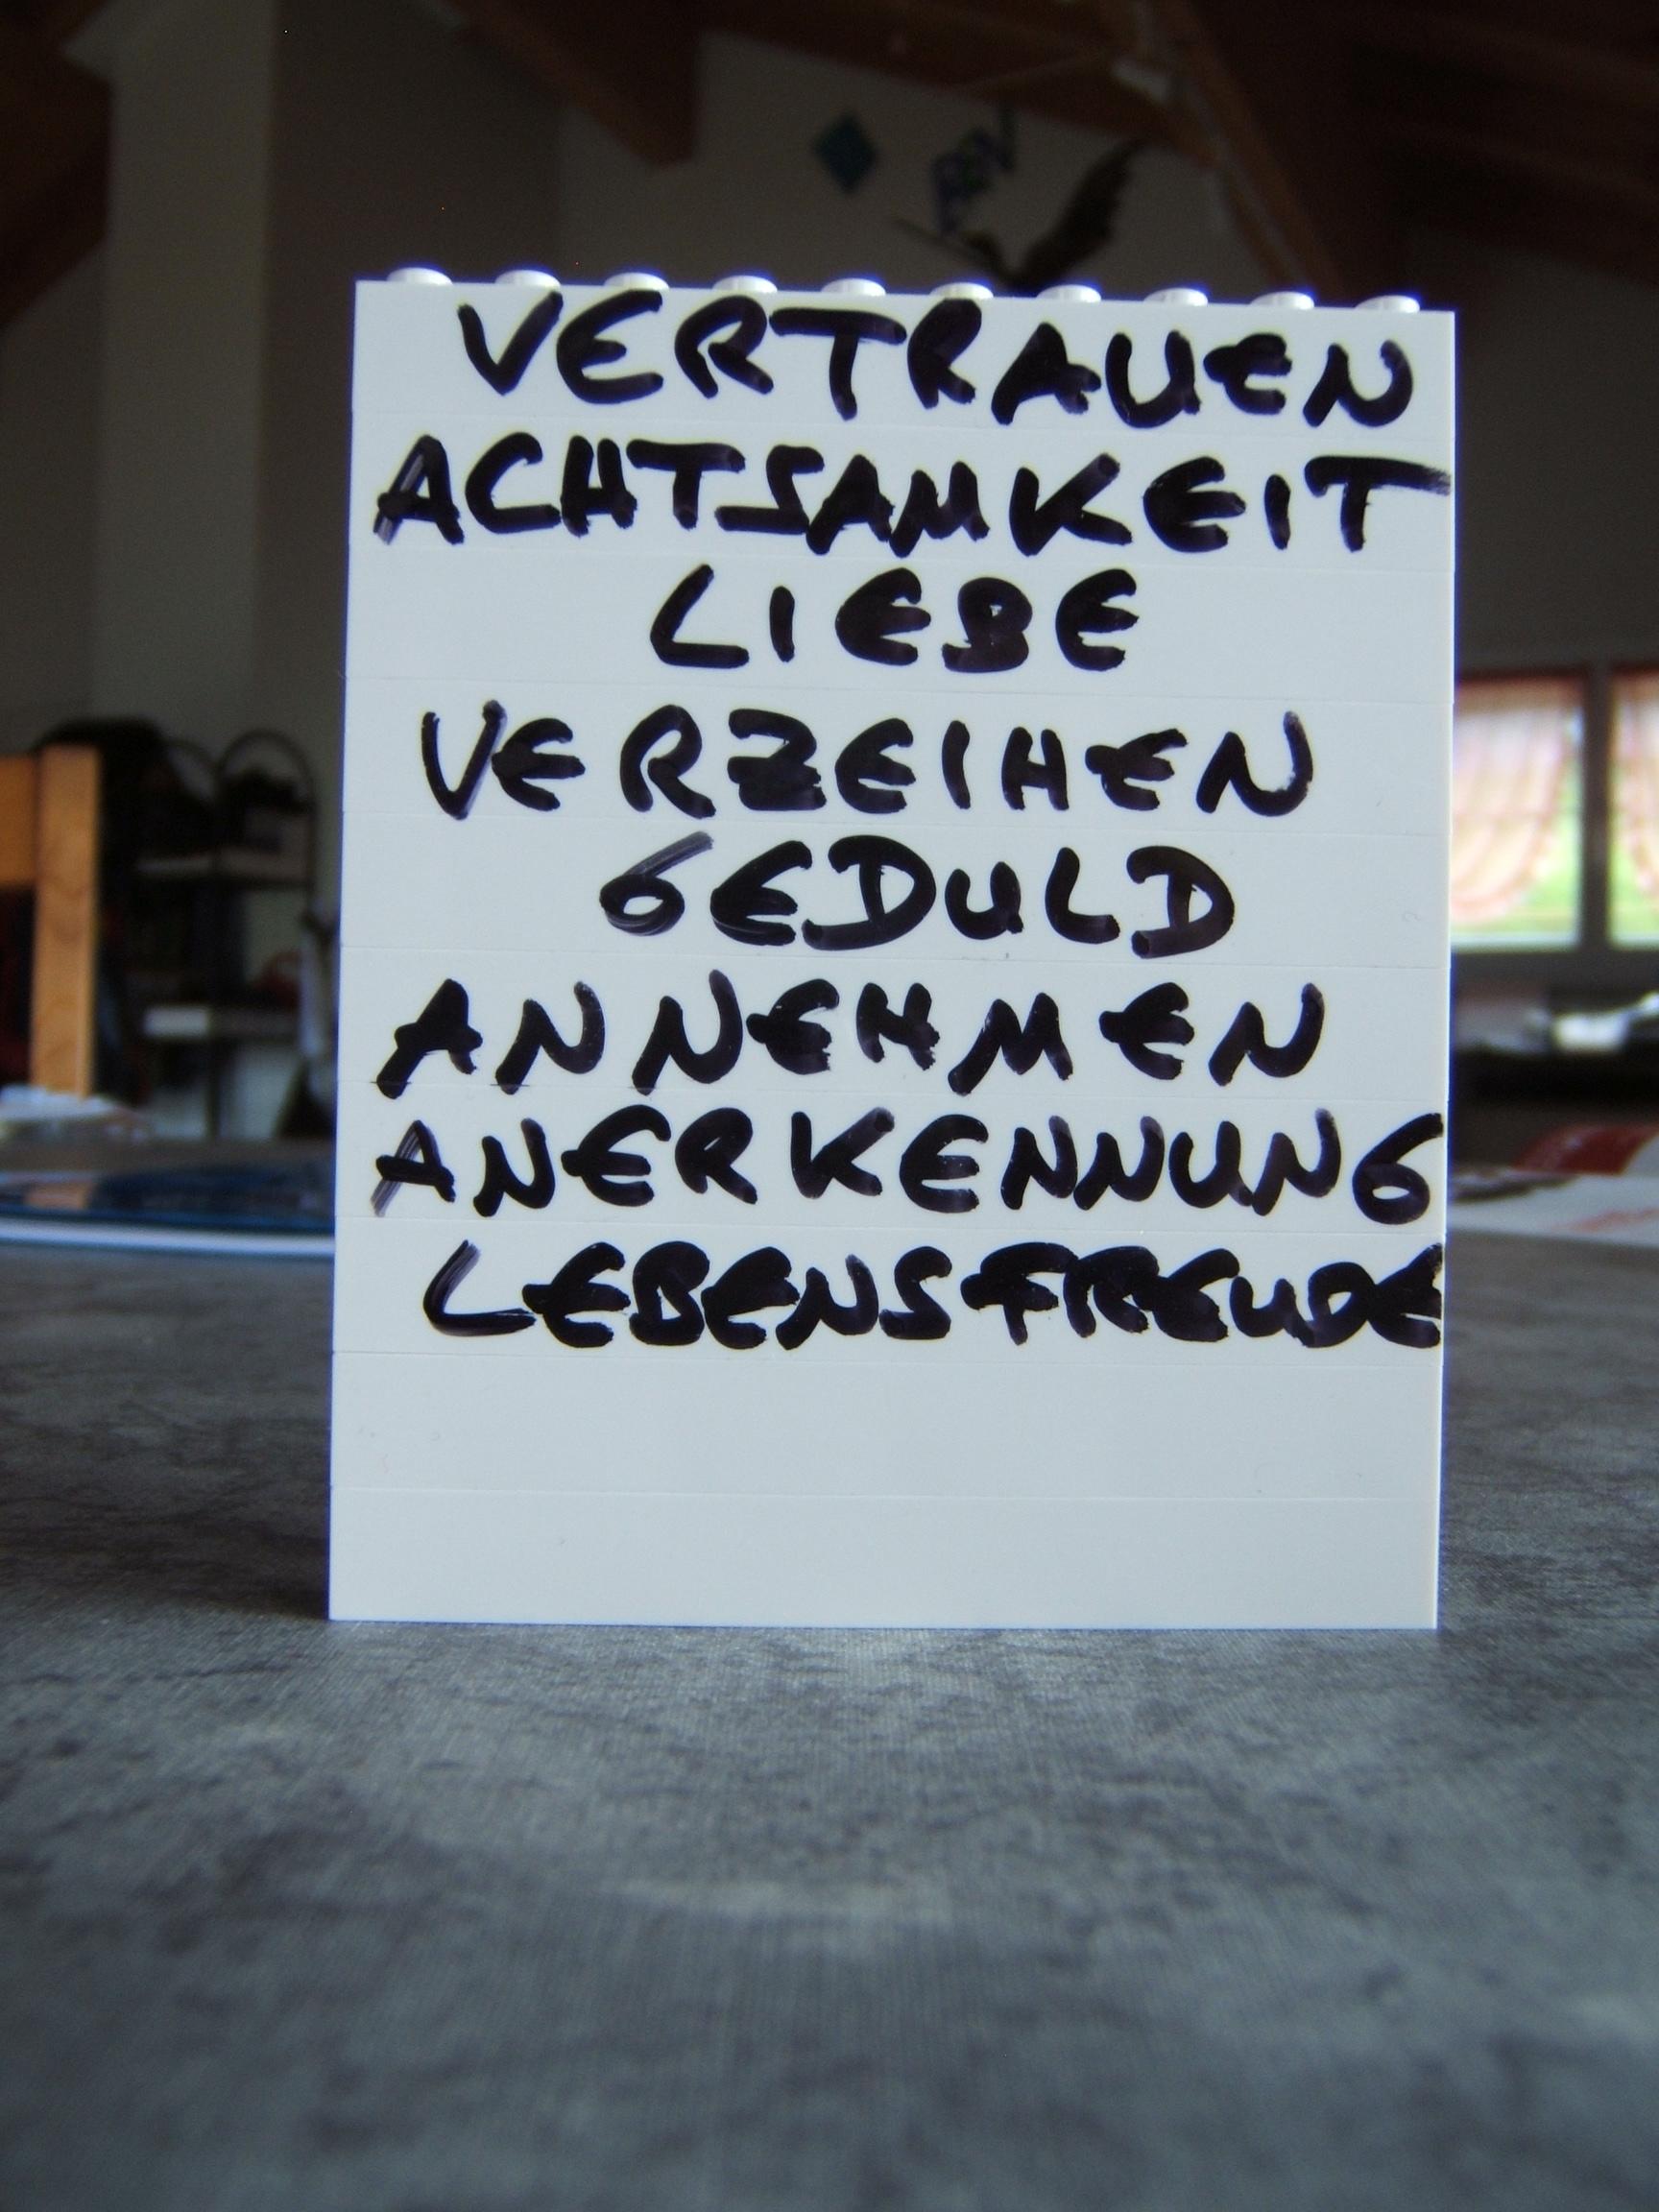 VERTRAUEN
ACHTSAMKEIT
LIEBE
VERZEIHEN
GEDULD
ANNEHMEN
ANERKENNUNG
LEBENSFREUDE